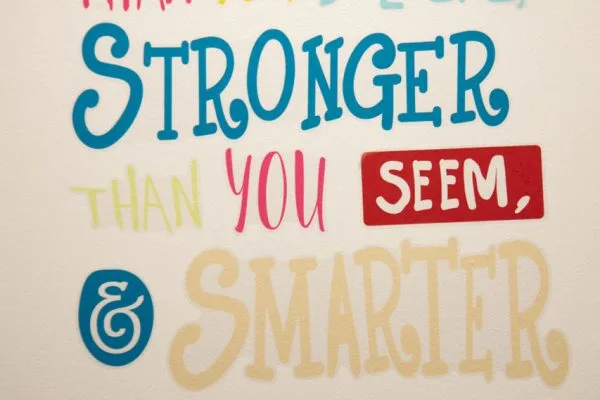 STRONGER
THAN YOU SEEM,
& SMARTER